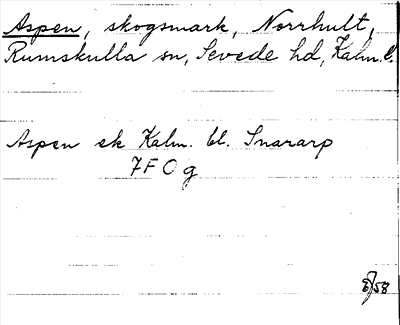 Aspen, skogsmark, Norrhult,
Rumskulla sn, Sevede hd, Kalm. l.
Aspen ek Kalm. bl. Snararp
7F 0 g
/58